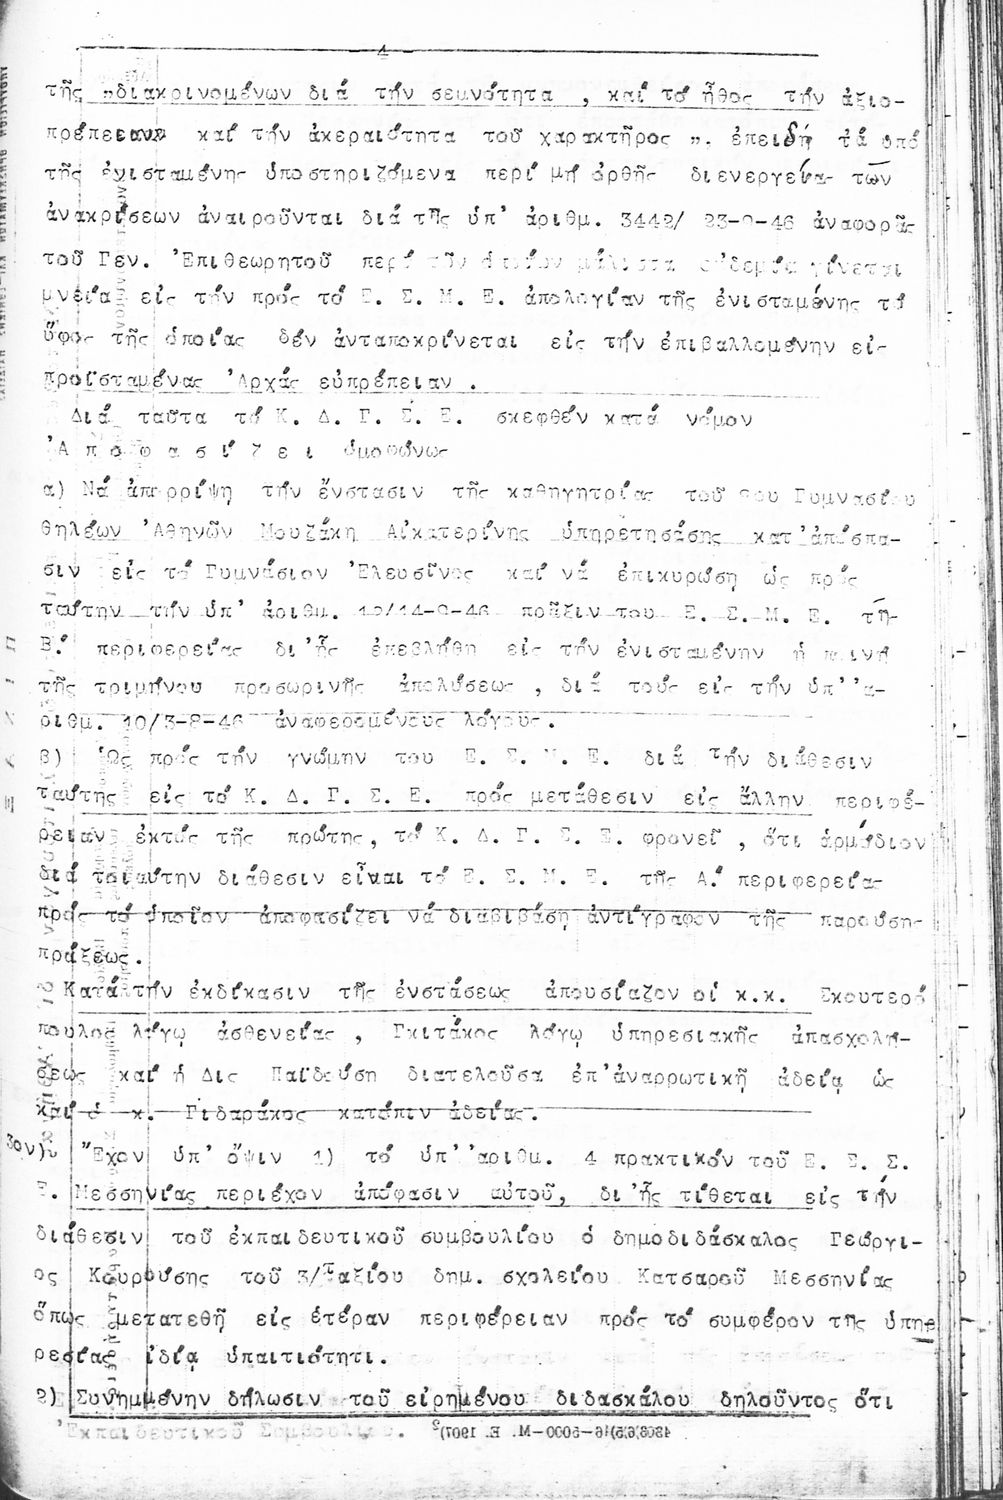 4
τῆς "διακρινομένων διά τήν σεμνότητα , καί τό ἦθος τήν ἀξιο-
πρέπειαν καί τήν ἀκεραιότητα τοῦ χαρακτῆρος ". ἐπειδή τά ὑπό
τῆς ἐνισταμένης ὑποστηριζόμενα περί μή ὀρθῆς διενεργείας τῶν
ἀνακρίσεων ἀναιροῦνται διά τῆς ὑπ' ἀριθμ. 3442/ 23-9-46 ἀναφορᾶς
τοῦ Γεν. Ἐπιθεωρητοῦ περί τῶν ὁποίων μάλιστα οὐδεμία γίνεται
μνεία εἰς τήν πρός τό Ε. Σ. Μ. Ε. ἀπολογίαν τῆς ἐνισταμένης τό
ὕφος τῆς ὁποίας δέν ἀνταποκρίνεται εἰς τήν ἐπιβαλλομένην εἰς
προϊσταμένας Ἀρχάς εὐπρέπειαν .
Διά ταῦτα τό Κ. Δ. Γ. Σ. Ε. σκεφθέν κατά νόμον
Ἀ π ο φ α σ ί ζ ε ι ὁμοφώνως
α) Νά ἀπορρίψη τήν ἔνστασιν τῆς καθηγητρίας τοῦ Γυμνασίου
θηλέων Ἀθηνῶν Μουζάκη Αἰκατερίνης ὑπηρετησάσης κατ'ἀπόσπα-
σιν εἰς τό Γυμνάσιον Ἐλευσῖνος καί νά ἐπικυρώση ὡς πρός
ταύτην τήν ὑπ' ἀριθμ. 12/14-9-46 πρᾶξιν του Ε. Σ. Μ. Ε. τῆς
Β.' περιφερείας δι'ἧς ἐπεβλήθη εἰς τήν ἐνισταμένην ἡ ποινή
τῆς τριμήνου προσωρινῆς ἀπολύσεως , διά τούς εἰς τήν ὑπ''α-
ριθμ. 10/3-8-46 ἀναφερομένους λόγους.
β) Ὡς πρός τήν γνώμην του Ε. Σ. Μ. Ε. διά τήν διάθεσιν
ταύτης εἰς τό Κ. Δ. Γ. Σ. Ε. πρός μετάθεσιν εἰς ἄλλην περιφέ-
ρειαν ἐκτός τῆς πρώτης, τό Κ. Δ. Γ. Σ. Ε. φρονεῖ , ὅτι ἁρμόδιον
διά τοιαύτην διάθεσιν εἶναι τό Ε. Σ. Μ. Ε. τῆς Α.' περιφερείας
πρός τό ὁποῖον ἀποφασίζει νά διαβιβάση ἀντίγραφον τῆς παρούσης
πράξεως.
Κατά τήν ἐκδίκασιν τῆς ἐνστάσεως ἀπουσίαζον οἱ κ.κ. Σκουτερό
πουλος λόγῳ ἀσθενείας , Γκιτάκος λόγῳ ὑπηρεσιακῆς ἀπασχολή-
σεως καί ἡ Δις Παϊδούση διατελοῦσα ἐπ'ἀναρρωτικῇ ἀδείᾳ ὡς
καί ὁ κ. Γιδαράκος κατόπιν ἀδείας.
3ον) Ἔχον ὑπ' ὄψιν 1) τό ὑπ''αριθμ. 4 πρακτικόν τοῦ Ε. Σ. Σ.
Ε. Μεσσηνίας περιέχον ἀπόφασιν αὐτοῦ, δι'ἧς τίθεται εἰς τήν
διάθεσιν τοῦ ἐκπαιδευτικοῦ συμβουλίου ὁ δημοδιδάσκαλος Γεώργι-
ος Κουρούσης τοῦ 3/ταξίου δημ. σχολείου Κατσαροῦ Μεσσηνίας
ὅπως μετατεθῇ εἰς ἑτέραν περιφέρειαν πρός τό συμφέρον της ὑπη-
ρεσίας ἰδίᾳ ὑπαιτιότητι.
2) Συνημμένην δήλωσιν τοῦ εἰρημένου διδασκάλου δηλοῦντος ὅτι